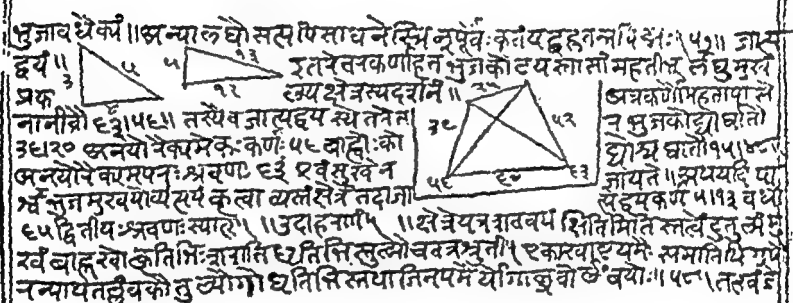 भुजावधैक्यं ॥ अन्यालघौ सत्यपि साधनेस्मिन् पूर्वैः कृतं यद्गुरुतन्न विद्मः ॥५७॥ जात्य
द्वयं ॥ ३ ५ ४ ५ १३ १२ इतरेतरकर्णाहत भुजकोटयस्तासां महतीभू र्लघुमुखं
प्रक त्र्यक्षेत्रस्यदर्शनं ॥ २५ ३९ ५२ ५६ ६० ६३ अत्रकर्णौमहतायासे
नानीतौ ६३।५६॥ तस्यैव जात्यद्वयस्येतरेतर भुजकोट्योर्घातौ
३६।२० अनयोरैक्यमेकः कर्णः ५६ बाह्वोः को ट्योश्च घातौ १५।४८
अनयोरैक्यमपरः श्रवणः ६३ एवं सुखेन ज्ञायते ॥ अथ यदि पा
र्श्वभुजमुखयोर्व्यत्ययं कृत्वा न्यस्तं क्षेत्रं तदा जा त्यद्वयकर्ण ५।१३ वधो
६५ द्वितीयः श्रवणः स्यात् ॥ उदाहरणं ॥ क्षेत्रे यत्र शतत्रयं क्षितिमितिस्तत्वेंदुतुल्यं मु
खं बाहू खोत्कृतिभिः शरातिधृतिभिस्तुल्यौ च तत्र श्रुती। एका खाष्टयमैः समातिथिगुणै
रन्याथ तल्लंबकौ तुल्यौ गोधृतिभिस्तथा जिनयमैर्योगाच्छ्रवोलंबयोः ॥५८॥ तत्खंडे